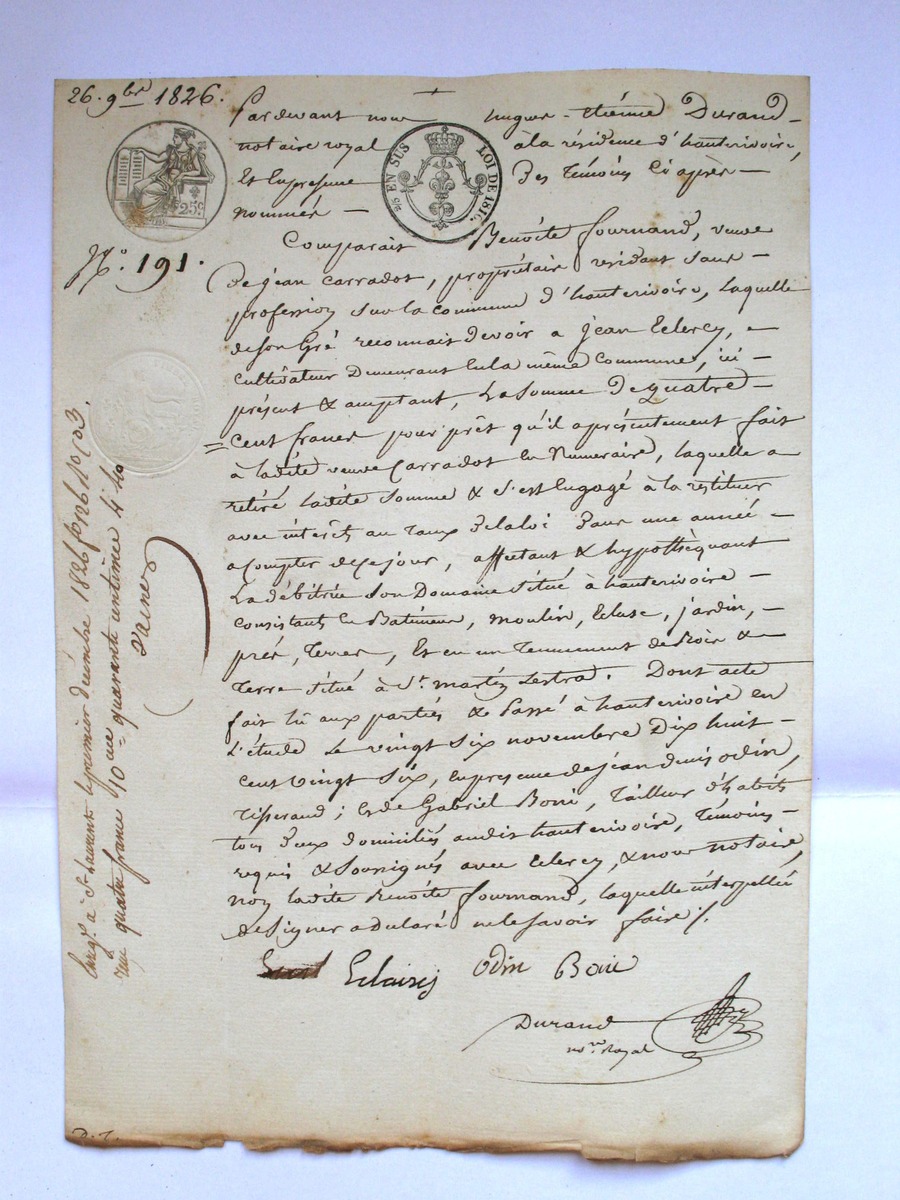 26. 9bre 1826.
Pardevant nous hugues-étiénne Durand
notaire royal à la résidence d'hauterivoire,
Et En présence Des Témoins Ci après
nommés
25c
2/5 EN SUS LOI DE 1816.
No. 191.
Comparait Benoîte fournand, veuve
De jean Carradot, propriétaire résidant sans
profession sur la commune d'hauterivoire, Laquelle
de son Gré reconnait devoir a jean Eclercy,
cultivateur Demeurant En la même Commune, ici
présent & acceptant, La Somme De quatre
Cent francs pour prêt qu'il a présentement fait
à Ladite veuve Carradot En Numéraire, laquelle a
retiré Ladite Somme & S'est Engagé à la restituer
avec intérêts au Taux De la loi Dans une année
a Compter de ce jour, affectant & hypothèquant
La débitrice Son Domaine Situé à hauterivoire
Consistant En Batimens, moulin, Ecluse, jardin,
prés, Terres, Et en un Tennement de Bois &
Terre Situé à St. martin Lestra. Dont acte
fait lû aux parties & Passé à hauterivoire en
L'étude Le vingt Six novembre Dix huit
Cent Vingt Six, En présence de jean denis odin,
Tisserand; Et de Gabriel Boni, Tailleur d'habits
tous Deux domiciliés audit hauterivoire, Témoins
requis & Soussignés avec Eclercy, & nous notaire,
non Ladite Benoîte fournand, laquelle interpellée
de Signer a déclaré ne le Savoir faire ./.
Eclaircy Odin Boni
Durand
nore. Royal
Enregé. à St Laurent le premier décembre 1826 fo 126 Ro C 3.
reçu quatre francs 10eme quarante centimes 4.40
D'aines